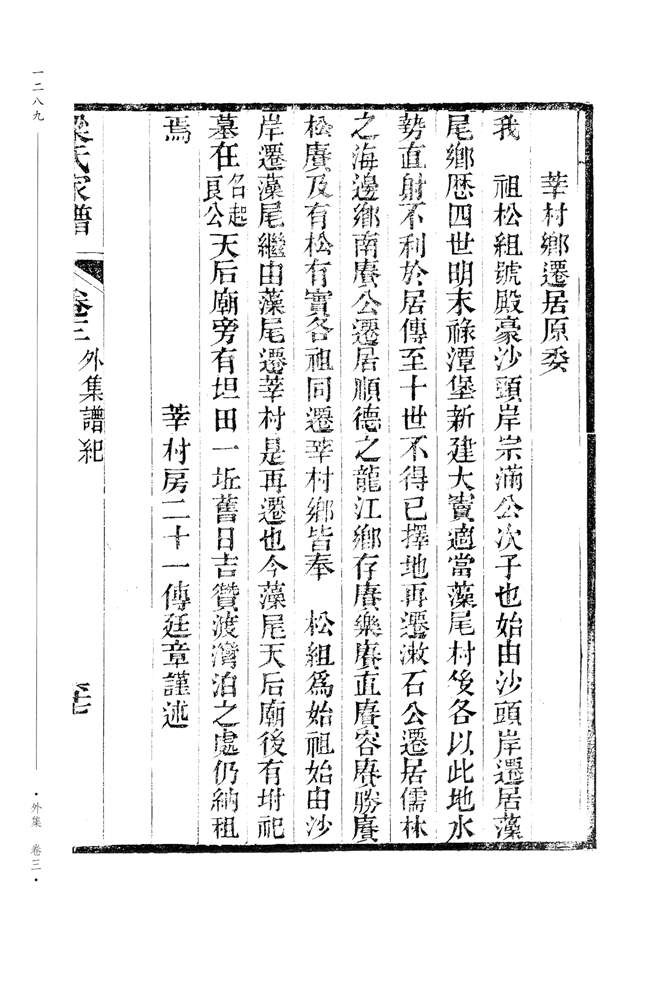 莘村鄉遷居原委
我　祖松組號殿豪沙頭岸宗滿公次子也始由沙頭岸遷居藻
尾鄉歷四世明末祿潭堡新建大竇適當藻尾村後各以此地水
勢直射不利於居傳至十世不得已擇地再遷漱石公遷居儒林
之海邊鄉南賡公遷居順德之龍江鄉存賡樂賡直賡容賡勝賡
松賡及有松有實各祖同遷莘村鄉皆奉　松組爲始祖始由沙
岸遷藻尾繼由藻尾遷莘村是再遷也今藻尾天后廟後有坿祀
墓在名起良公天后廟旁有坦田一坵舊日吉贊渡灣泊之處仍納租
焉
莘村房二十一傳廷章謹述
梁氏家譜
卷三 外集譜紀
一二八九
・外集　卷三・